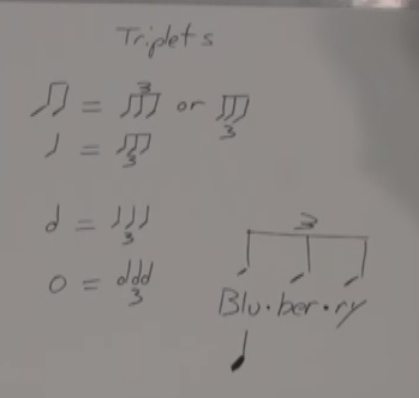 Triplets
♫ = 3 ♪♪♪ or ♪♪♪ 3
♩ = ♪♪♪ 3
d = ♩♩♩ 3
o = ddd 3
3
Blu·ber·ry
♩